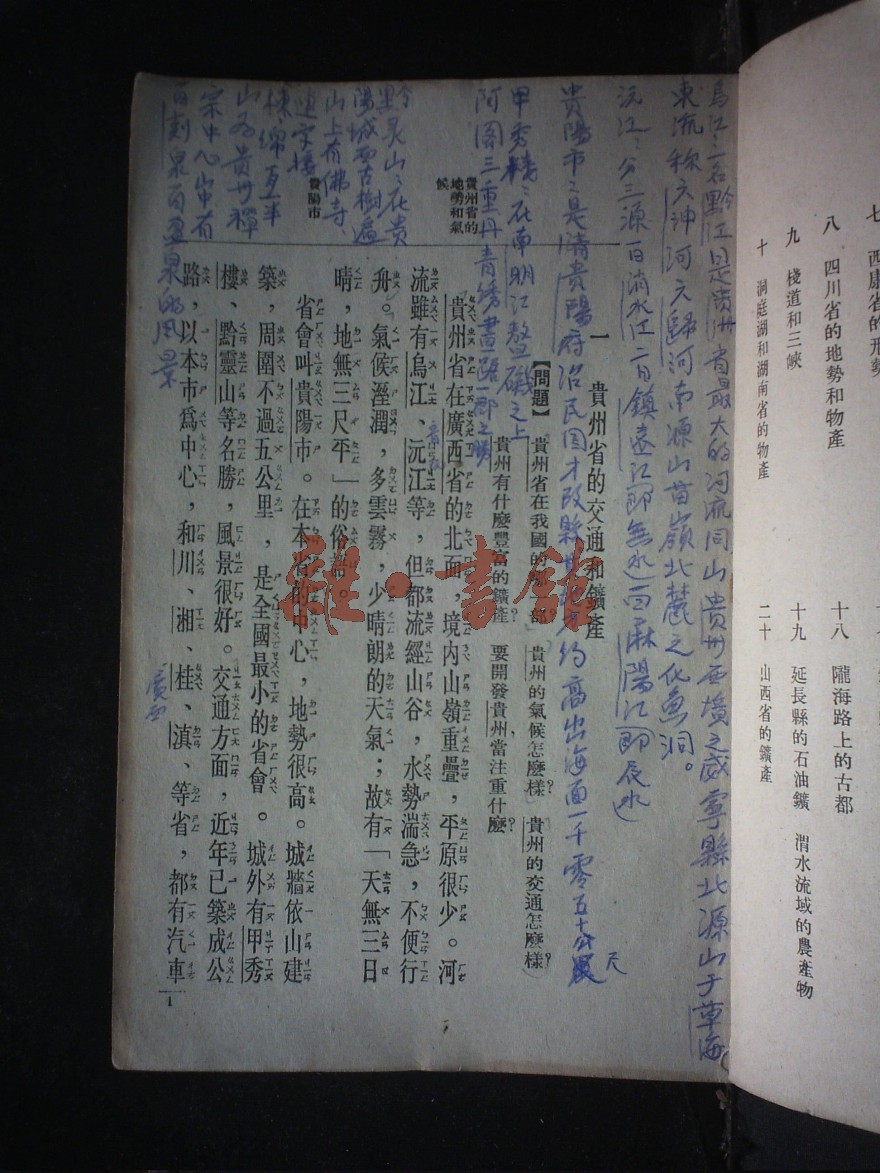 七 西康省的形勢
八 四川省的地勢和物產
九 棧道和三峽
十 洞庭湖和湖南省的物產
十八 隴海路上的古都
十九 延長縣的石油鑛 渭水流域的農產物
二十 山西省的鑛產
烏江:一名黔江日是貴洲省最大的河流同山貴州西境之威寧縣北源山于草海
東流称六沖河六歸河南源山苗嶺北麓之化魚洞。
沅江:分三源一曰清水江二曰鎮遠江即無水三曰麻陽江即辰水
一 貴州省的交通和鑛產
貴陽市:是清貴陽府治民国才改縣
約高出海面一千零五十公尺
【問題】
貴州省在我國的哪一部? 貴州的氣候怎麼樣? 貴州的交通怎麼樣?
貴州有什麼豐富的鑛產? 要開發貴州,當注重什麼?
甲秀樓:在南明江鰲磯之上
阿閣三重丹青綉畫一路一郡之勝
貴州省的地勢和氣候
貴州省在廣西省的北面,境内山嶺重疊,平原很少。河
流雖有烏江、沅江等,但都流經山谷,水勢湍急,不便行
舟。氣候溼潤,多雲霧,少晴朗的天氣;故有「天無三日
晴,地無三尺平」的俗語。
黔灵山:在貴
陽城西古樹遍
山上有佛寺、
貴陽市
省會叫貴陽市。在本省的中心,地勢很高。城牆依山建
築,周圍不過五公里,是全國最小的省會。城外有甲秀
樓、黔靈山等名勝,風景很好。交通方面,近年已築成公
路,以本市爲中心,和川、湘、桂、滇、等省,都有汽車
廣西
山为貴州禪
宗中心山中有
百刻泉百盈泉的風景
1
雜·書館